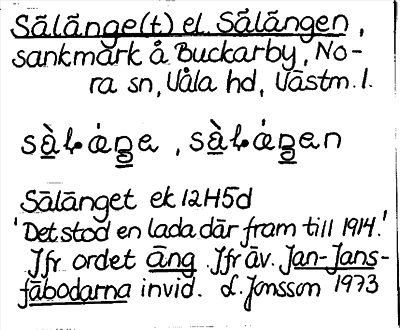 Sålänge(t) el. Sålängen,
sankmark å Buckarby, No-
ra sn, Våla hd, Västm. l.
Sålänget ek 12H5d
'Det stod en lada där fram till 1914.'
Jfr ordet äng. Jfr äv. Jan-Jans-
fäbodarna invid. L. Jonsson 1973